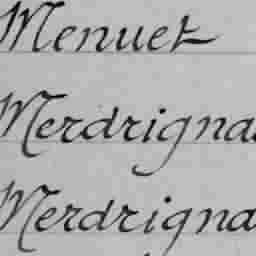 Menuet
Merdrigna
Merdrigna